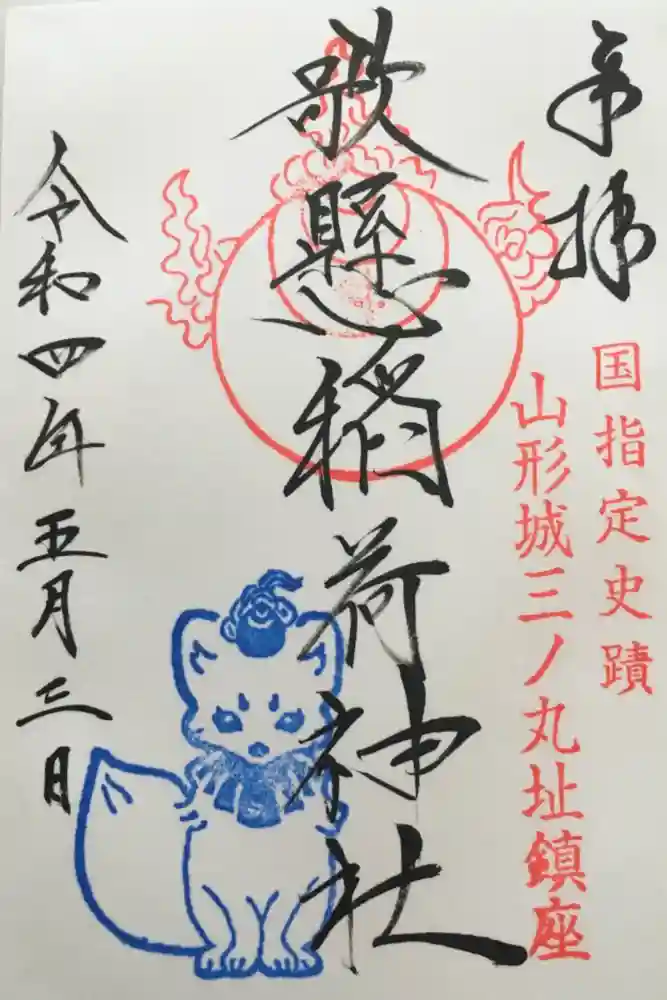 奉拝
国指定史蹟
山形城三ノ丸址鎮座
歌懸稲荷神社
令和四年五月三日